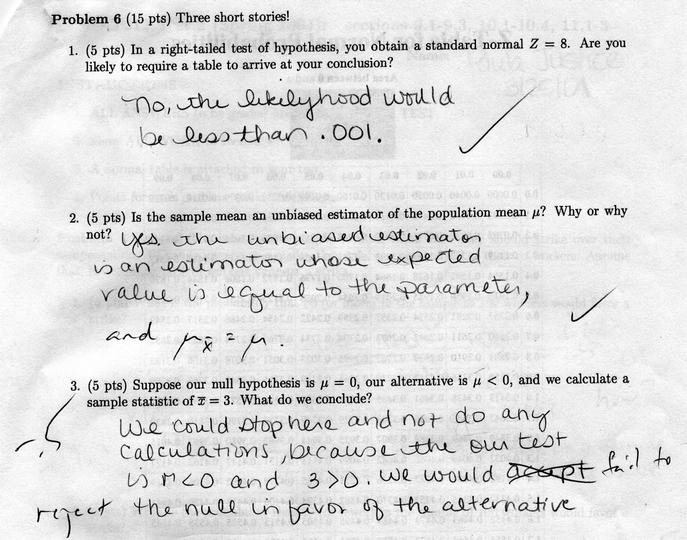 Problem 6 (15 pts) Three short stories!
1. (5 pts) In a right-tailed test of hypothesis, you obtain a standard normal Z = 8. Are you
likely to require a table to arrive at your conclusion?
No, the likelyhood would
be less than .001.
2. (5 pts) Is the sample mean an unbiased estimator of the population mean μ? Why or why
not? Yes. The unbiased estimator
is an estimator whose expected
value is equal to the parameter,
and μx̄ = μ.
3. (5 pts) Suppose our null hypothesis is μ = 0, our alternative is μ < 0, and we calculate a
sample statistic of x̄ = 3. What do we conclude?
We could stop here and not do any
calculations, because the our test
is μ<0 and 3>0. We would accept fail to
reject the null in favor of the alternative